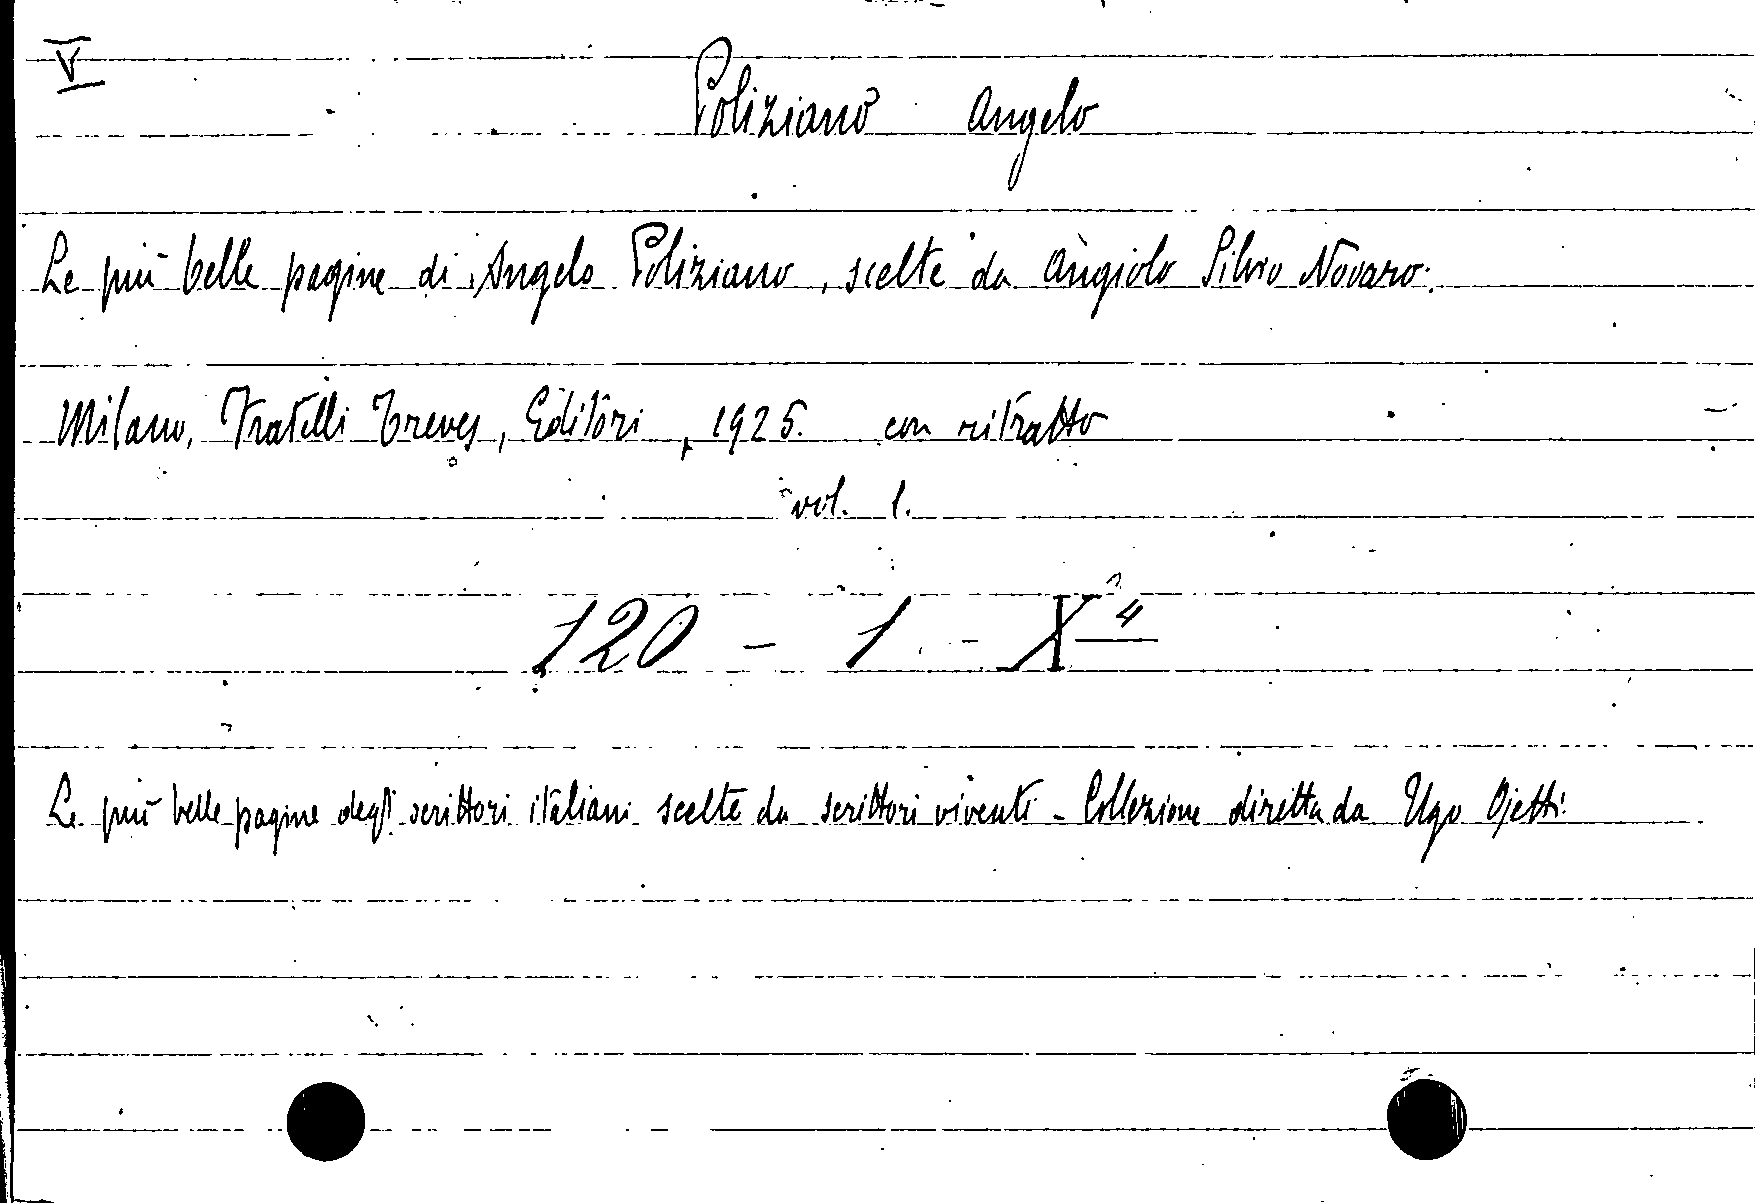 V
Poliziano Angelo
Le più belle pagine di Angelo Poliziano, scelte da Angiolo Silvio Novaro.
Milano, Fratelli Treves, Editori, 1925. con ritratto
vol. 1.
120 - 1 - X 4
Le più belle pagine degli scrittori italiani scelte da scrittori viventi - Collezione diretta da Ugo Ojetti.